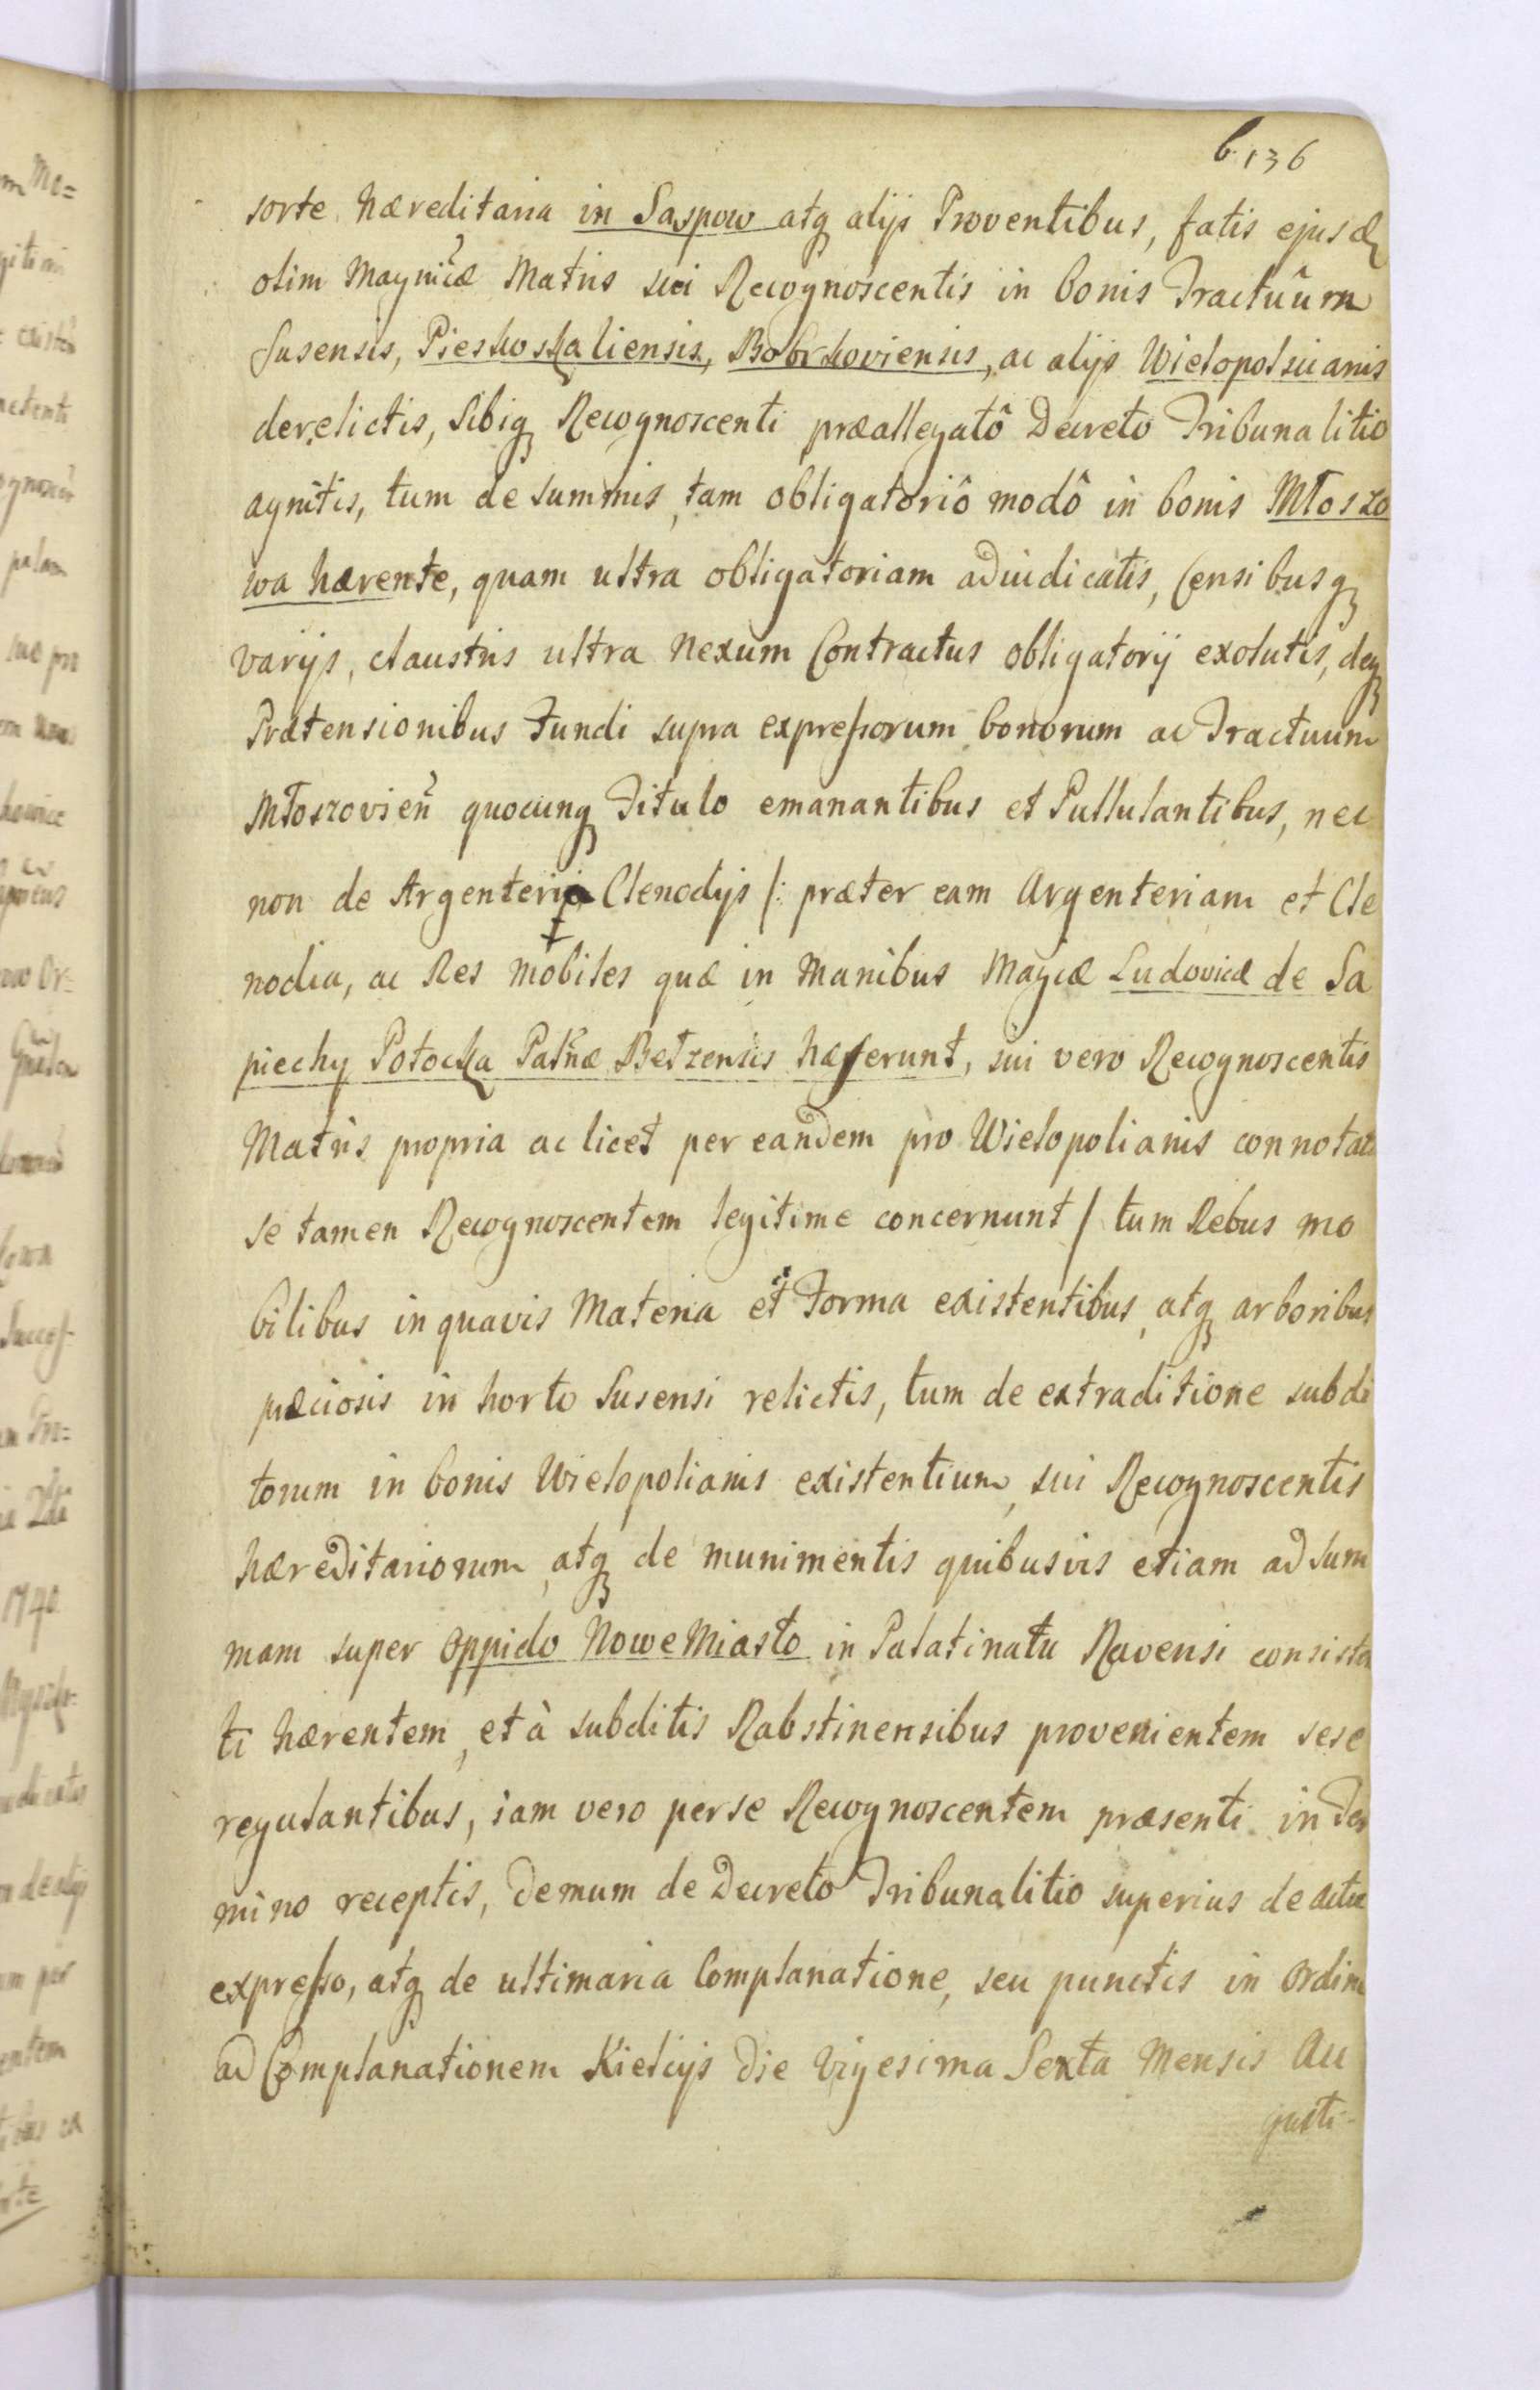 b. 136
sorte hæreditaria in Saspow atq alijs Proventibus, fatis ejusd
olim Magnicæ Matris sui Recognoscentis in bonis Tractuûm
Susensis, Pieskoskaliensis, Bobrkoviensis, ac alijs Wielopolscianis
derelictis, sibiq Recognoscenti præallegatô Decreto Tribunalitio
agnitis, tum de summis, tam obligatoriô modô in bonis Młoszo
wa hærente, quam ultra obligatoriam adiudicatis, Censibusq
varijs, claustris ultra nexum Contractus obligatorij exolutis, deq
Prætensionibus Fundi supra expressorum bonorum ac Tractuum
Młoszovień quocunq Titulo emanantibus et Pullulantibus, nec
non de Argenteria Clenodijs /: præter eam Argenteriam et Cle
nodia, ac Res mobiles quæ in Manibus Magcæ Ludovicæ de Sa
piechy Potocka Patnæ Betzensis hæserunt, sui vero Recognoscentis
Matris propria ac licet per eandem pro Wielopolianis connotata
se tamen Recognoscentem legitime concernunt / tum Rebus mo
bilibus in quavis Materia et Forma existentibus, atq arboribus
præciosis in horto Susensi relictis, tum de extraditione subdi
torum in bonis Wielopolianis existentium, sui Recognoscentis
hæreditariorum, atq de munimentis quibusvis etiam ad Sum
mam super Oppido Nowe Miasto in Palatinatu Ravensi consisten
ti hærentem, et à subditis Rabstinensibus provenientem sese
regulantibus, iam vero per se Recognoscentem præsenti in Ter
mino receptis, demum de Decreto Tribunalitio superius de actu
expresso, atq de ultimaria Complanatione, seu punctis in Ordine
ad Complanationem Kielcijs die Vigesima Sexta Mensis Au
gusti-